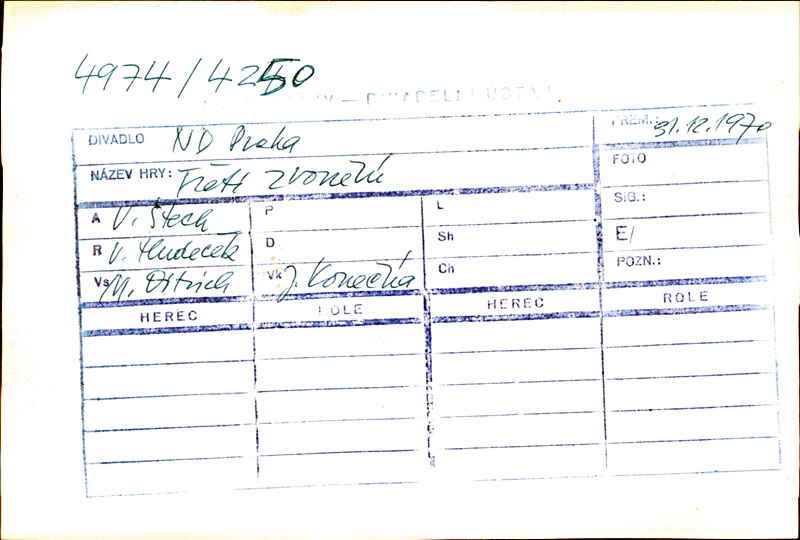 4974/4250
— DIVADELNÍ ÚSTAV
DIVADLO ND Praha
PREM.: 31.12.1970
NÁZEV HRY: Třetí zvonění
FOTO
A V. Štech
P
L
SIG.:
R V. Hudeček
D
Sh
E/
Vs M. Ditrich
Vk J. Konečná
Ch
POZN.:
HEREC ROLE HEREC ROLE